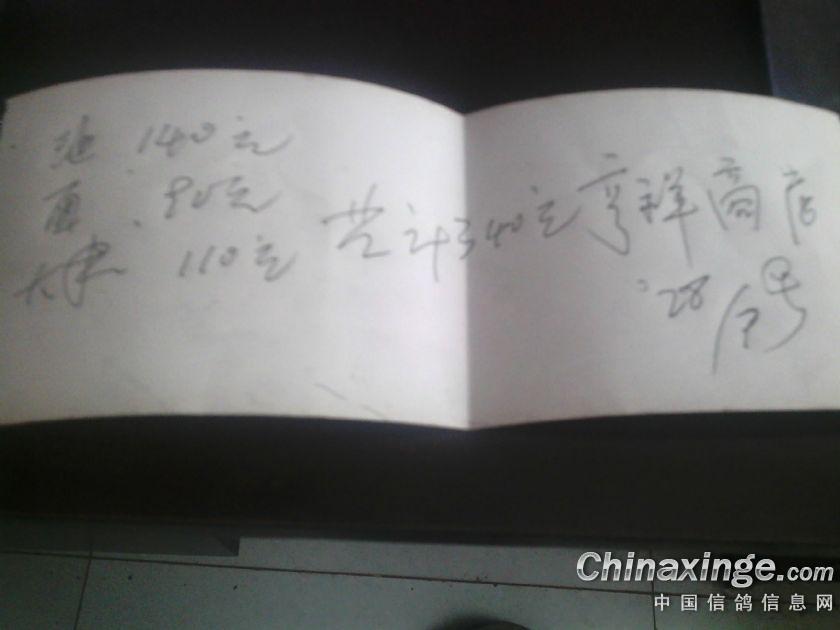 140元
面 90元
大米 110元
共计340元
亨祥商店
28号
Chinaxinge.com
中国信鸽信息网